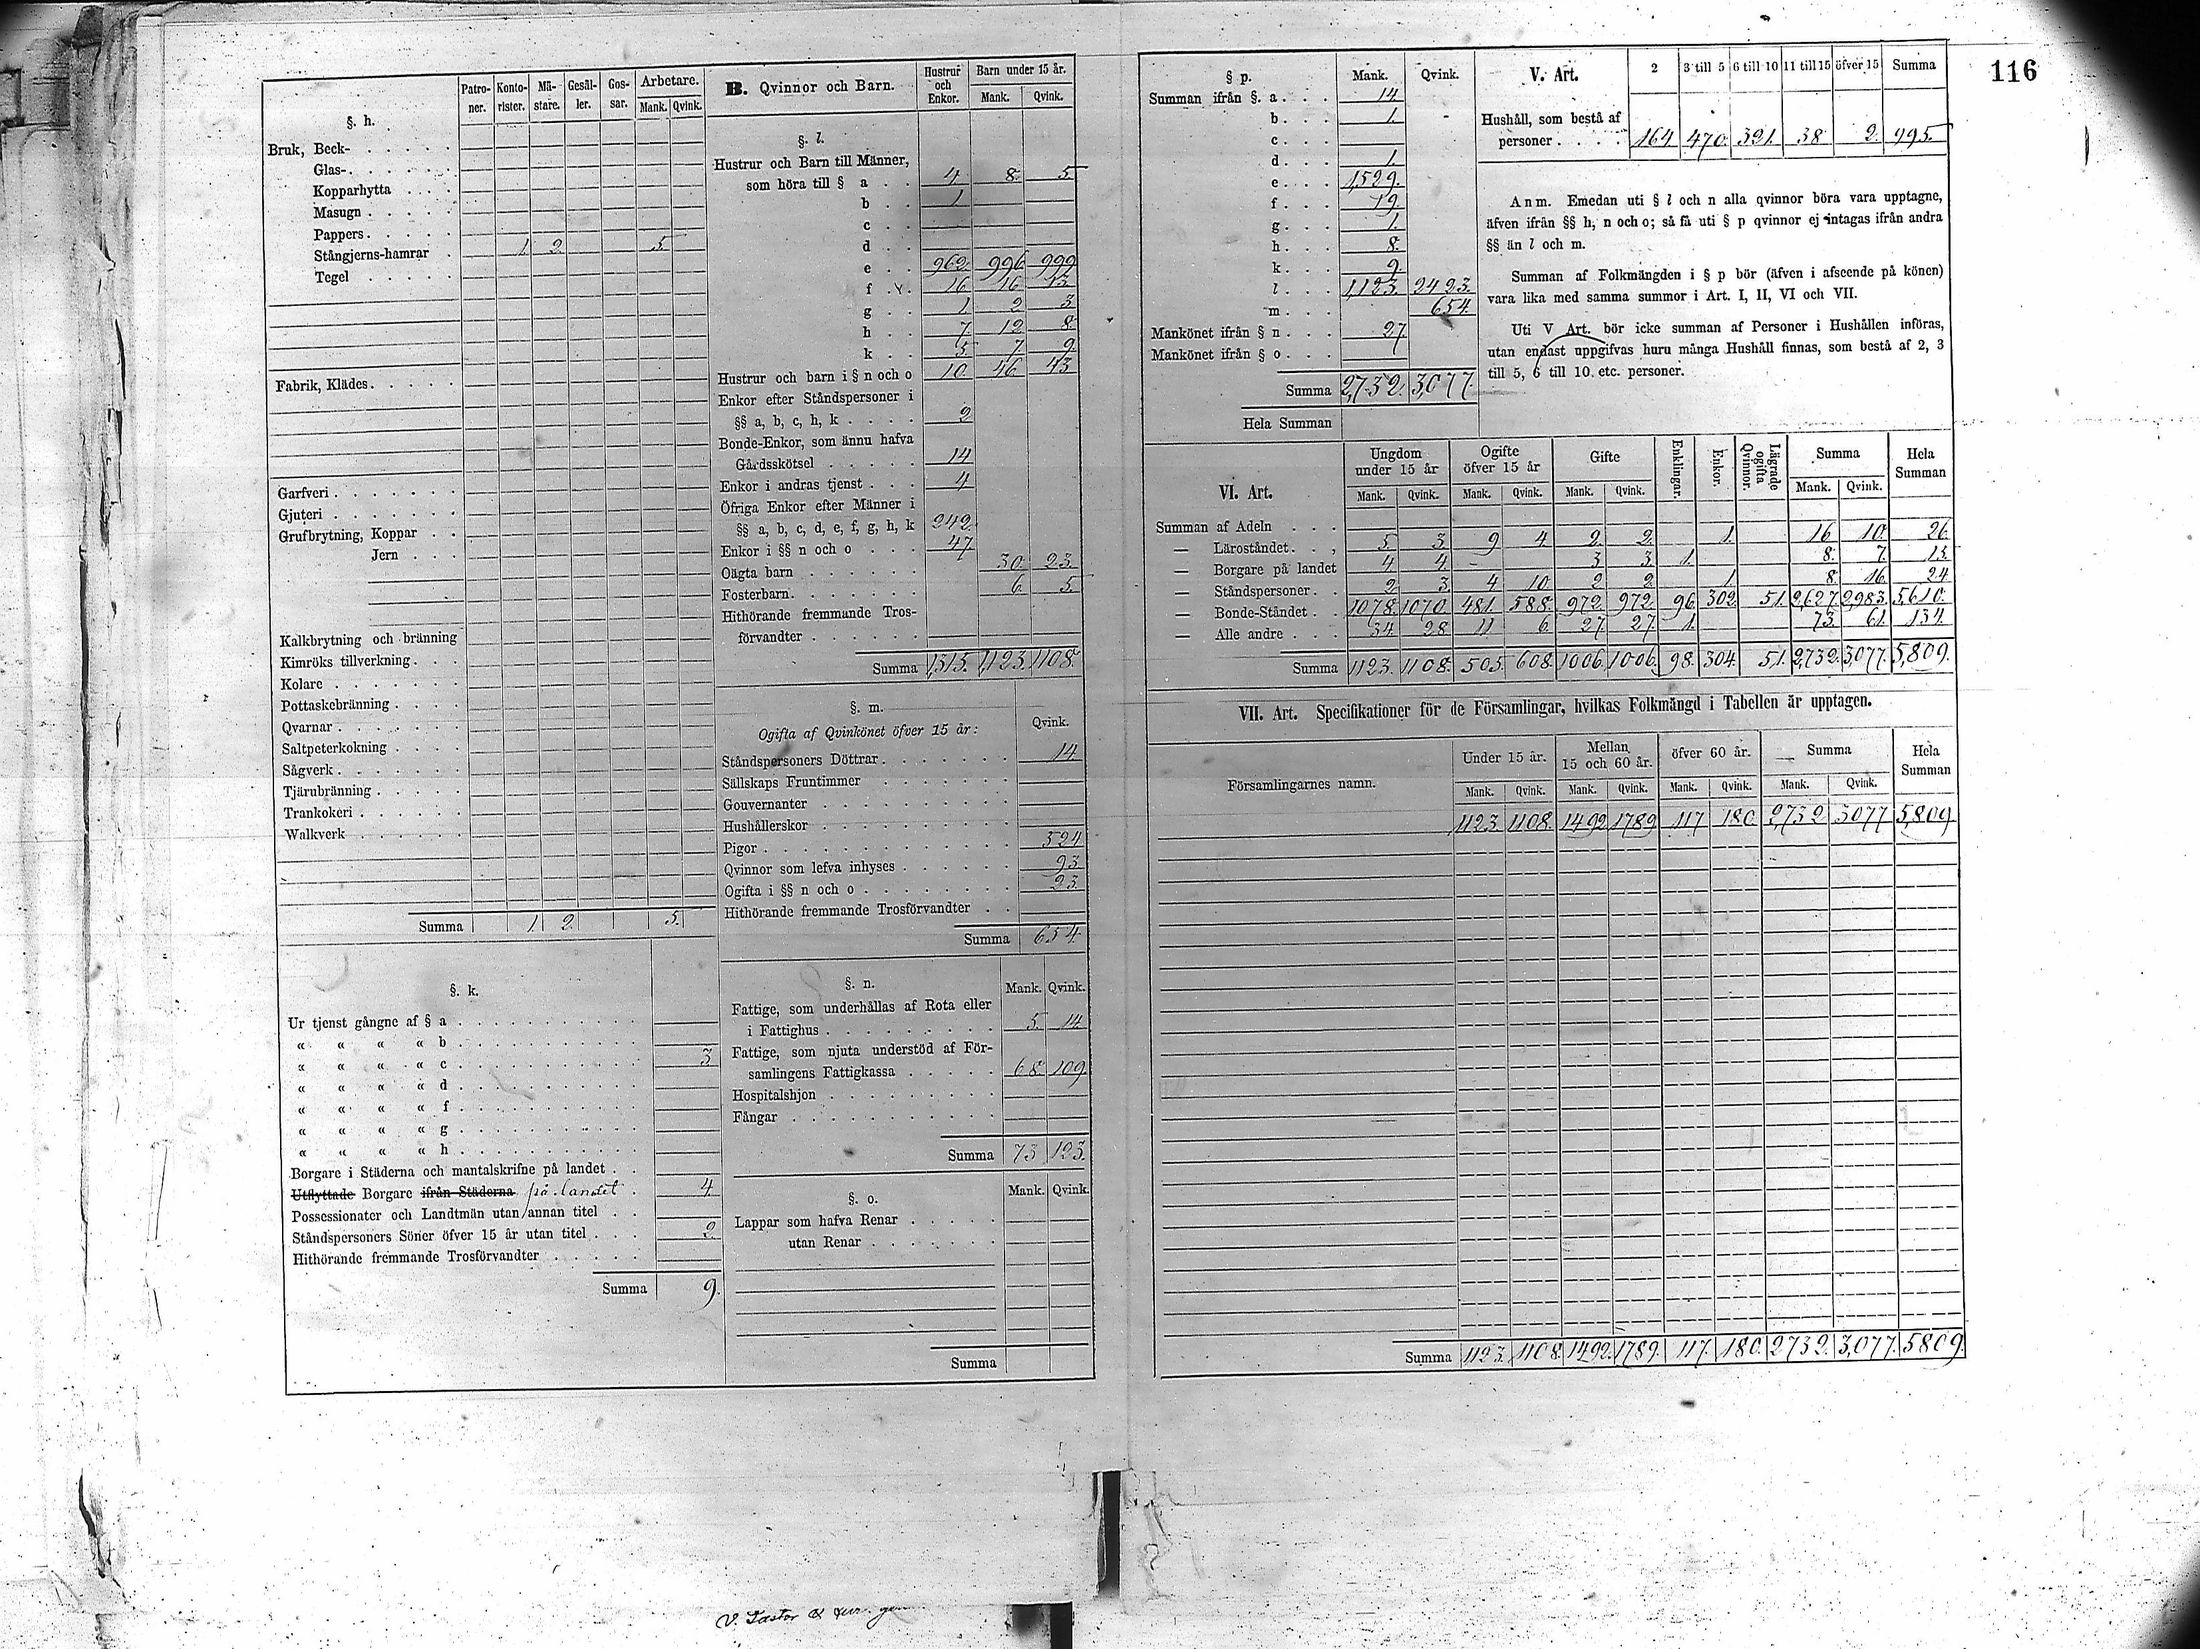 116
§. h.
Patro-ner. Konto-rister. Mä-stare. Gesäl-ler. Gos-sar. Arbetare. Mank. Qvink.
Bruk, Beck-
Glas-
Kopparhytta
Masugn
Pappers
Stångjerns-hamrar 1. 2. 5.
Tegel
Fabrik, Klädes
Garfveri
Gjuteri
Grufbrytning, Koppar
Jern
Kalkbrytning och bränning
Kimröks tillverkning
Kolare
Pottaskebränning
Qvarnar
Saltpeterkokning
Sågverk
Tjärubränning
Trankokeri
Walkverk
Summa 1. 2. 5.
§. k.
Ur tjenst gångne af § a
« « « « b
« « « « c 3
« « « « d
« « « « f
« « « « g
« « « « h
Borgare i Städerna och mantalskrifne på landet
Utflyttade Borgare ifrån Städerna på landet 4
Possessionater och Landtmän utan annan titel
Ståndspersoners Söner öfver 15 år utan titel 2
Hithörande fremmande Trosförvandter
Summa 9.
B. Qvinnor och Barn.
Hustrur och Enkor. Barn under 15 år. Mank. Qvink.
§. l.
Hustrur och Barn till Männer,
som höra till § a 4 8. 5.
b 1
c
d
e 962. 996. 999
f 16 16 13
g 1. 2 3
h 7. 12 8.
k 5 7 9.
Hustrur och barn i § n och o 10. 46. 43
Enkor efter Ståndspersoner i
§§ a, b, c, h, k 2
Bonde-Enkor, som ännu hafva
Gårdsskötsel 14
Enkor i andras tjenst 4
Öfriga Enkor efter Männer i
§§ a, b, c, d, e, f, g, h, k 242.
Enkor i §§ n och o 47.
Oägta barn 30. 23.
Fosterbarn 6 5.
Hithörande fremmande Tros-
förvandter
Summa 1,315. 1,123. 1108.
§. m.
Ogifta af Qvinkönet öfver 15 år: Qvink.
Ståndspersoners Döttrar 14.
Sällskaps Fruntimmer
Gouvernanter
Hushållerskor
Pigor 524
Qvinnor som lefva inhyses 93.
Ogifta i §§ n och o 23.
Hithörande fremmande Trosförvandter
Summa 654.
§. n. Mank. Qvink.
Fattige, som underhållas af Rota eller
i Fattighus 5. 14
Fattige, som njuta understöd af För-
samlingens Fattigkassa 68. 109.
Hospitalshjon
Fångar
Summa 73 123.
§. o. Mank. Qvink.
Lappar som hafva Renar
utan Renar
Summa
§ p. Mank. Qvink.
Summan ifrån §. a 14.
b 1.
c
d 1.
e 1,529.
f 19.
g 1.
h 8.
k 9.
l 1,123. 2423.
m 654.
Mankönet ifrån § n 27.
Mankönet ifrån § o
Summa 2,732. 3,077.
Hela Summan
V. Art. 2 3 till 5 6 till 10 11 till 15 öfver 15 Summa
Hushåll, som bestå af
personer 164 470. 321. 38 2. 995.
Anm. Emedan uti § l och n alla qvinnor böra vara upptagne,
äfven ifrån §§ h, n och o; så få uti § p qvinnor ej intagas ifrån andra
§§ än l och m.
Summan af Folkmängden i § p bör (äfven i afseende på könen)
vara lika med samma summor i Art. I, II, VI och VII.
Uti V Art. bör icke summan af Personer i Hushållen införas,
utan endast uppgifvas huru många Hushåll finnas, som bestå af 2, 3
till 5, 6 till 10. etc. personer.
VI. Art. Ungdom under 15 år Ogifte öfver 15 år Gifte Enklingar. Enkor. Lägrade ogifta Qvinnor. Summa Hela Summan
Mank. Qvink. Mank. Qvink. Mank. Qvink. Mank. Qvink.
Summan af Adeln
— Läroståndet 5 3 9 4. 2. 2. 1. 16 10. 26.
— Borgare på landet 4 4 - 3 3. 1. 8. 7. 15.
— Ståndspersoner 2 3 4 10. 2 2. 1 8. 16 24
— Bonde-Ståndet 1078. 1070. 481. 588. 972 972. 96. 302. 51. 2,627. 2,983. 5,610.
— Alle andre 34. 28 11 6. 27. 27. 1. 73. 61. 134.
Summa 1123. 1108. 505. 608. 1006. 1006. 98. 304. 51. 2,732. 3,077. 5,809.
VII. Art. Specifikationer för de Församlingar, hvilkas Folkmängd i Tabellen är upptagen.
Församlingarnes namn. Under 15 år. Mellan 15 och 60 år. öfver 60 år. Summa Hela Summan
Mank. Qvink. Mank. Qvink. Mank. Qvink. Mank. Qvink.
1123. 1108. 1492 1789 117 180. 2,732 3077 5,809
Summa 1123. 1108. 1492. 1789. 117. 180. 2732. 3,077. 5809.